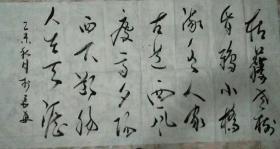 枯藤老树
昏鸦小桥
流水人家
古道西风
瘦马夕阳
西下断肠
人在天涯
乙未秋月于长安